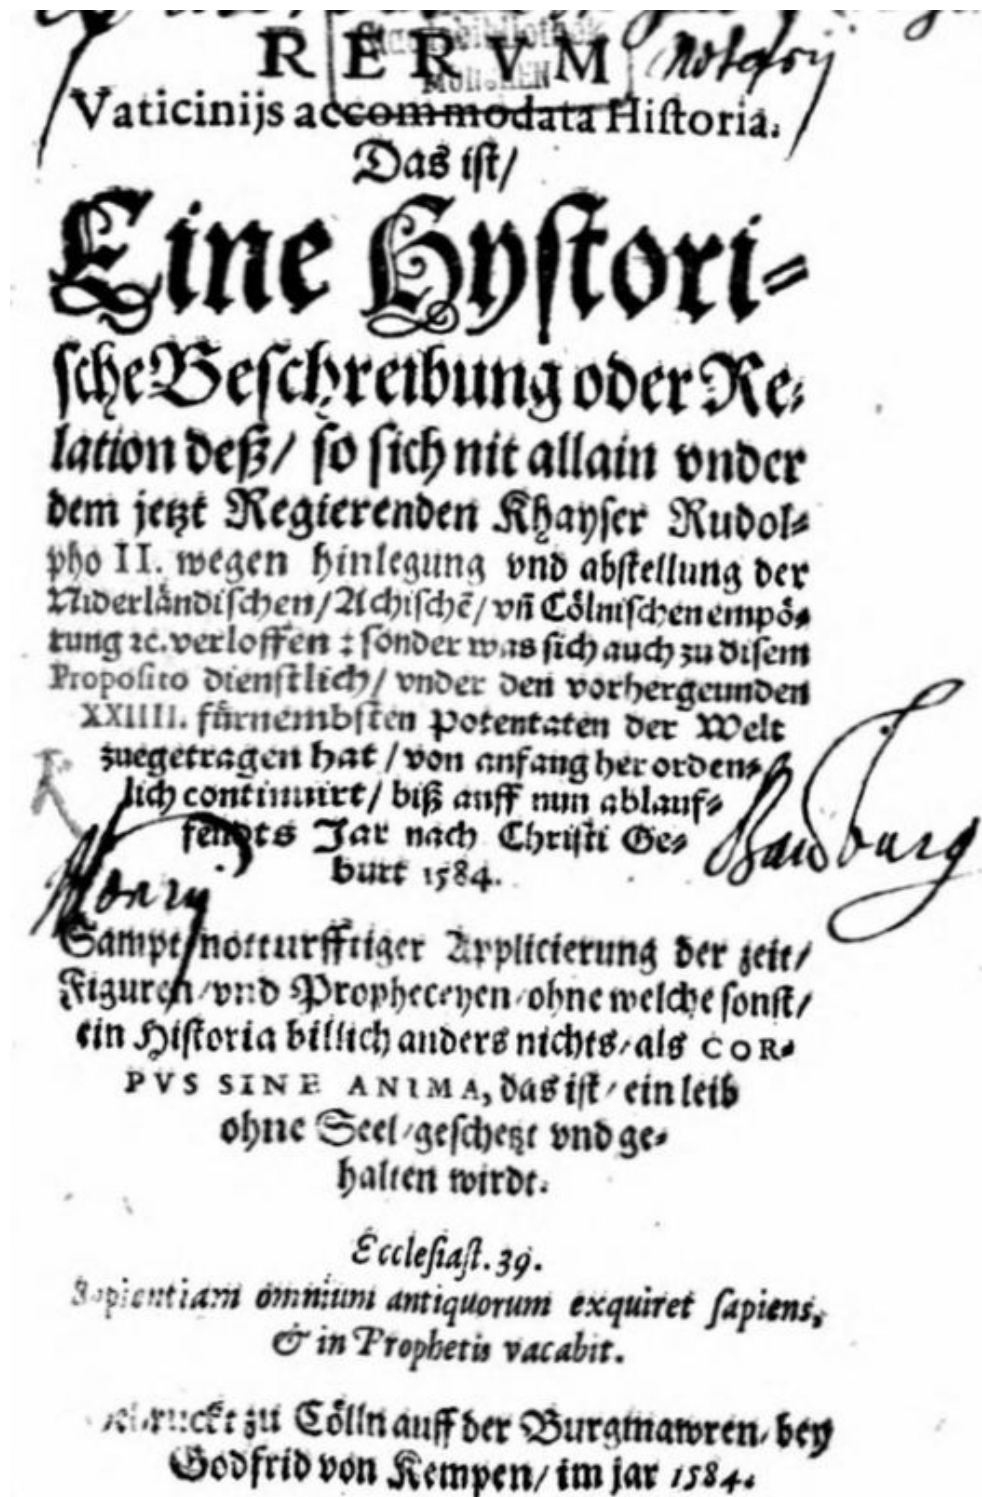 RERVM
Notarij
Vaticinijs accommodata Hiſtoria.
Das iſt/
Eine Hyſtori-
ſche Beſchreibung oder Re-
lation deß/ ſo ſich nit allain vnder
dem jetzt Regierenden Khayſer Rudol-
pho II. wegen hinlegung vnd abſtellung der
Niderländiſchen/ Achiſchē/ vñ Cölniſchen empö-
rung ꝛc. verloffen : ſonder was ſich auch zu diſem
Propoſito dienſtlich/ vnder den vorhergeunden
XXIIII. fürnembſten Potentaten der Welt
zuegetragen hat / von anfang her orden-
lich continuirt/ biß auff nun ablauf-
fendts Jar nach Chriſti Ge-
burt 1584.
Sampt notturfftiger Applicierung der zeit/
Figuren/ vnd Propheceyen/ ohne welche ſonſt/
ein Hiſtoria billich anders nichts/ als COR-
PVS SINE ANIMA, das iſt/ ein leib
ohne Seel/ geſchetzt vnd ge-
halten wirdt.
Eccleſiaſt. 39.
Sapientiam omnium antiquorum exquiret ſapiens,
& in Prophetis vacabit.
zu Cölln auff der Burgmawren/ bey
Godfrid von Kempen/ im jar 1584.